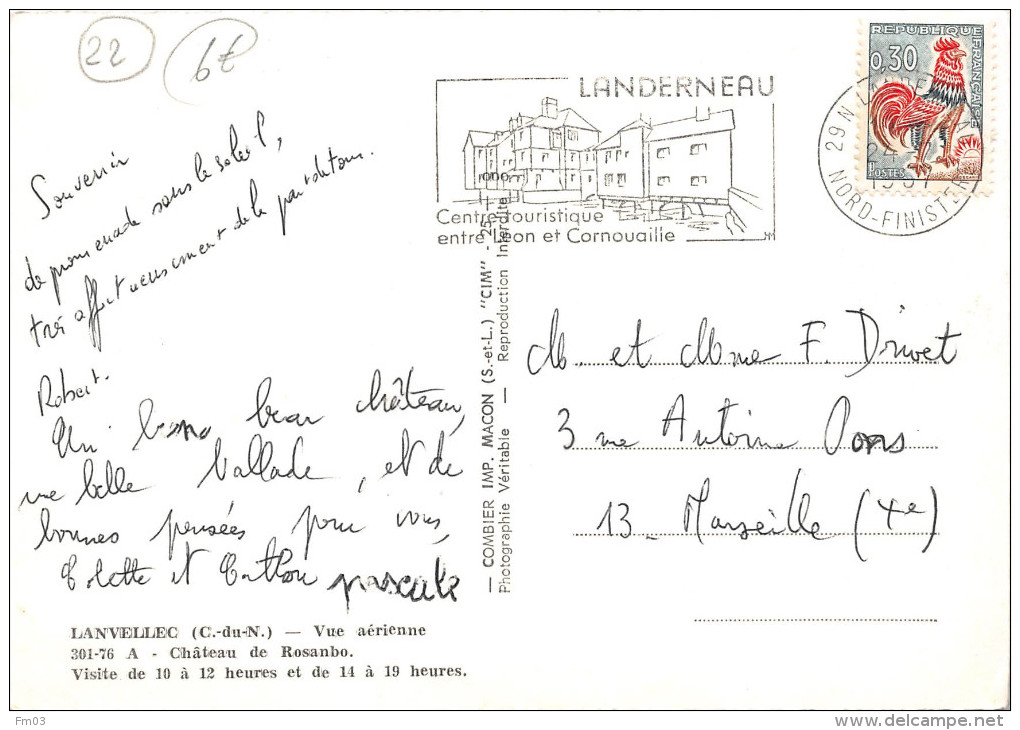 22
6€
Souvenir
de promenade sous le soleil,
très affectueusement de la part de tous.
Robert.
Un bon beau château,
une belle ballade, et de
bonnes pensées pour vous,
Colette et Cathou pascale
LANVELLEC (C.-du-N.) — Vue aérienne
301-76 A - Château de Rosanbo.
Visite de 10 à 12 heures et de 14 à 19 heures.
— COMBIER IMP. MACON (S.-et-L.) "CIM" - 25
Photographie Véritable — Reproduction Interdite
LANDERNEAU
Centre touristique
entre Léon et Cornouaille
29N LANDERNEAU
24
NORD-FINISTERE
REPUBLIQUE FRANÇAISE
0,30
POSTES
M. et Mme F. Drivet
3 rue Antoine Pons
13 - Marseille (4e)
Fm03
www.delcampe.net